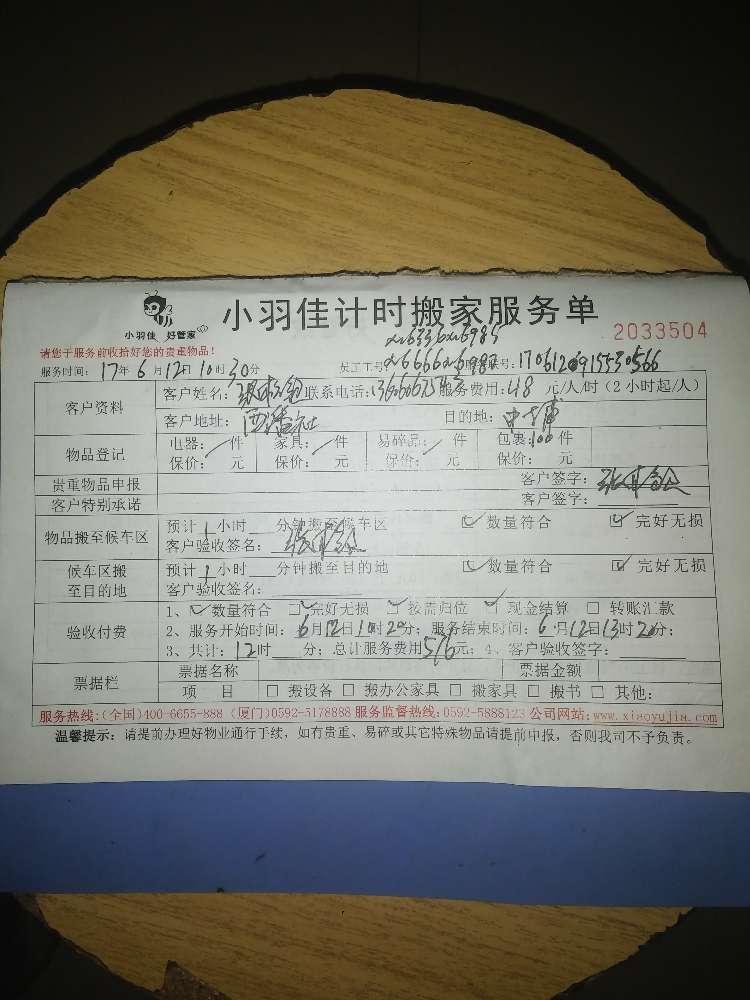 小羽佳 好管家
小羽佳计时搬家服务单
2033504
请您于服务前收拾好您的贵重物品!
服务时间: 17年 6月 12日 10时 30分 员工工号: 联号: 170612091553 0566
客户资料 客户姓名: 联系电话: 服务费用: 48 元/人/时 (2小时起/人)
客户地址: 目的地: 中埔
物品登记 电器: 件 家具: 件 易碎品: 件 包裹: 100 件
保价: 元 保价: 元 保价: 元 保价: 元
贵重物品申报 客户签字:
客户特别承诺 客户签字:
物品搬至候车区 预计 1 小时 分钟搬至候车区 ☑ 数量符合 ☑ 完好无损
客户验收签名:
候车区搬至目的地 预计 1 小时 分钟搬至目的地 ☑ 数量符合 ☑ 完好无损
客户验收签名:
验收付费 1、☑ 数量符合 ☑ 完好无损 ☑ 按需归位 ☑ 现金结算 □ 转账汇款
2、服务开始时间: 6月12日10时20分; 服务结束时间: 6月12日13时20分;
3、共计: 12时 分; 总计服务费用 576元; 4、客户验收签字:
票据栏 票据名称 票据金额
项 目 □ 搬设备 □ 搬办公家具 □ 搬家具 □ 搬书 □ 其他:
服务热线:(全国)400-6655-888 (厦门)0592-5178888 服务监督热线:0592-5888123 公司网站:www.xiaoyujia.com
温馨提示: 请提前办理好物业通行手续, 如有贵重、易碎或其它特殊物品请提前申报, 否则我司不予负责。